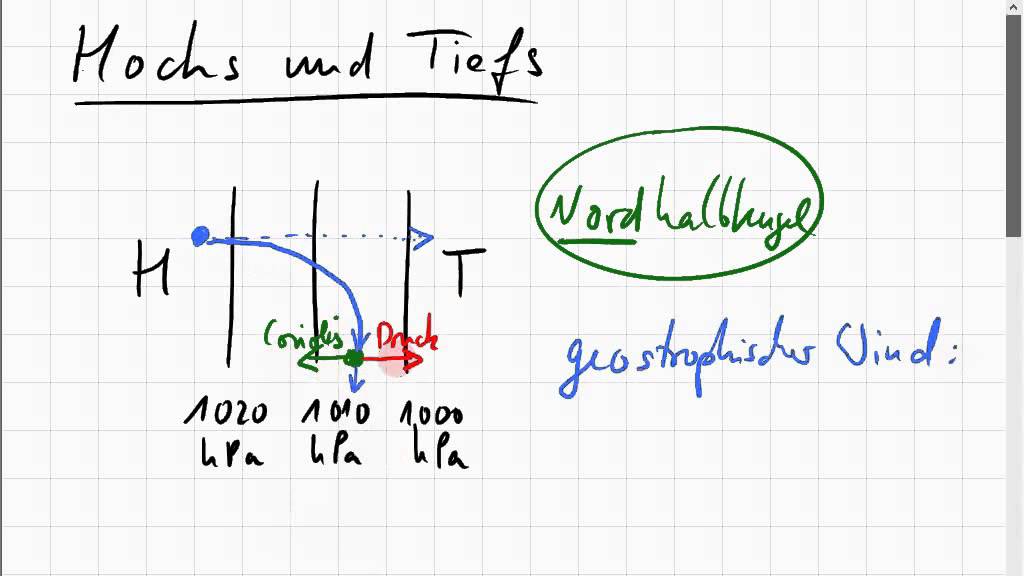 Hochs und Tiefs
Nordhalbkugel
H
T
Coriolis
Druck
geostrophischer Wind:
1020 1010 1000
hPa hPa hPa